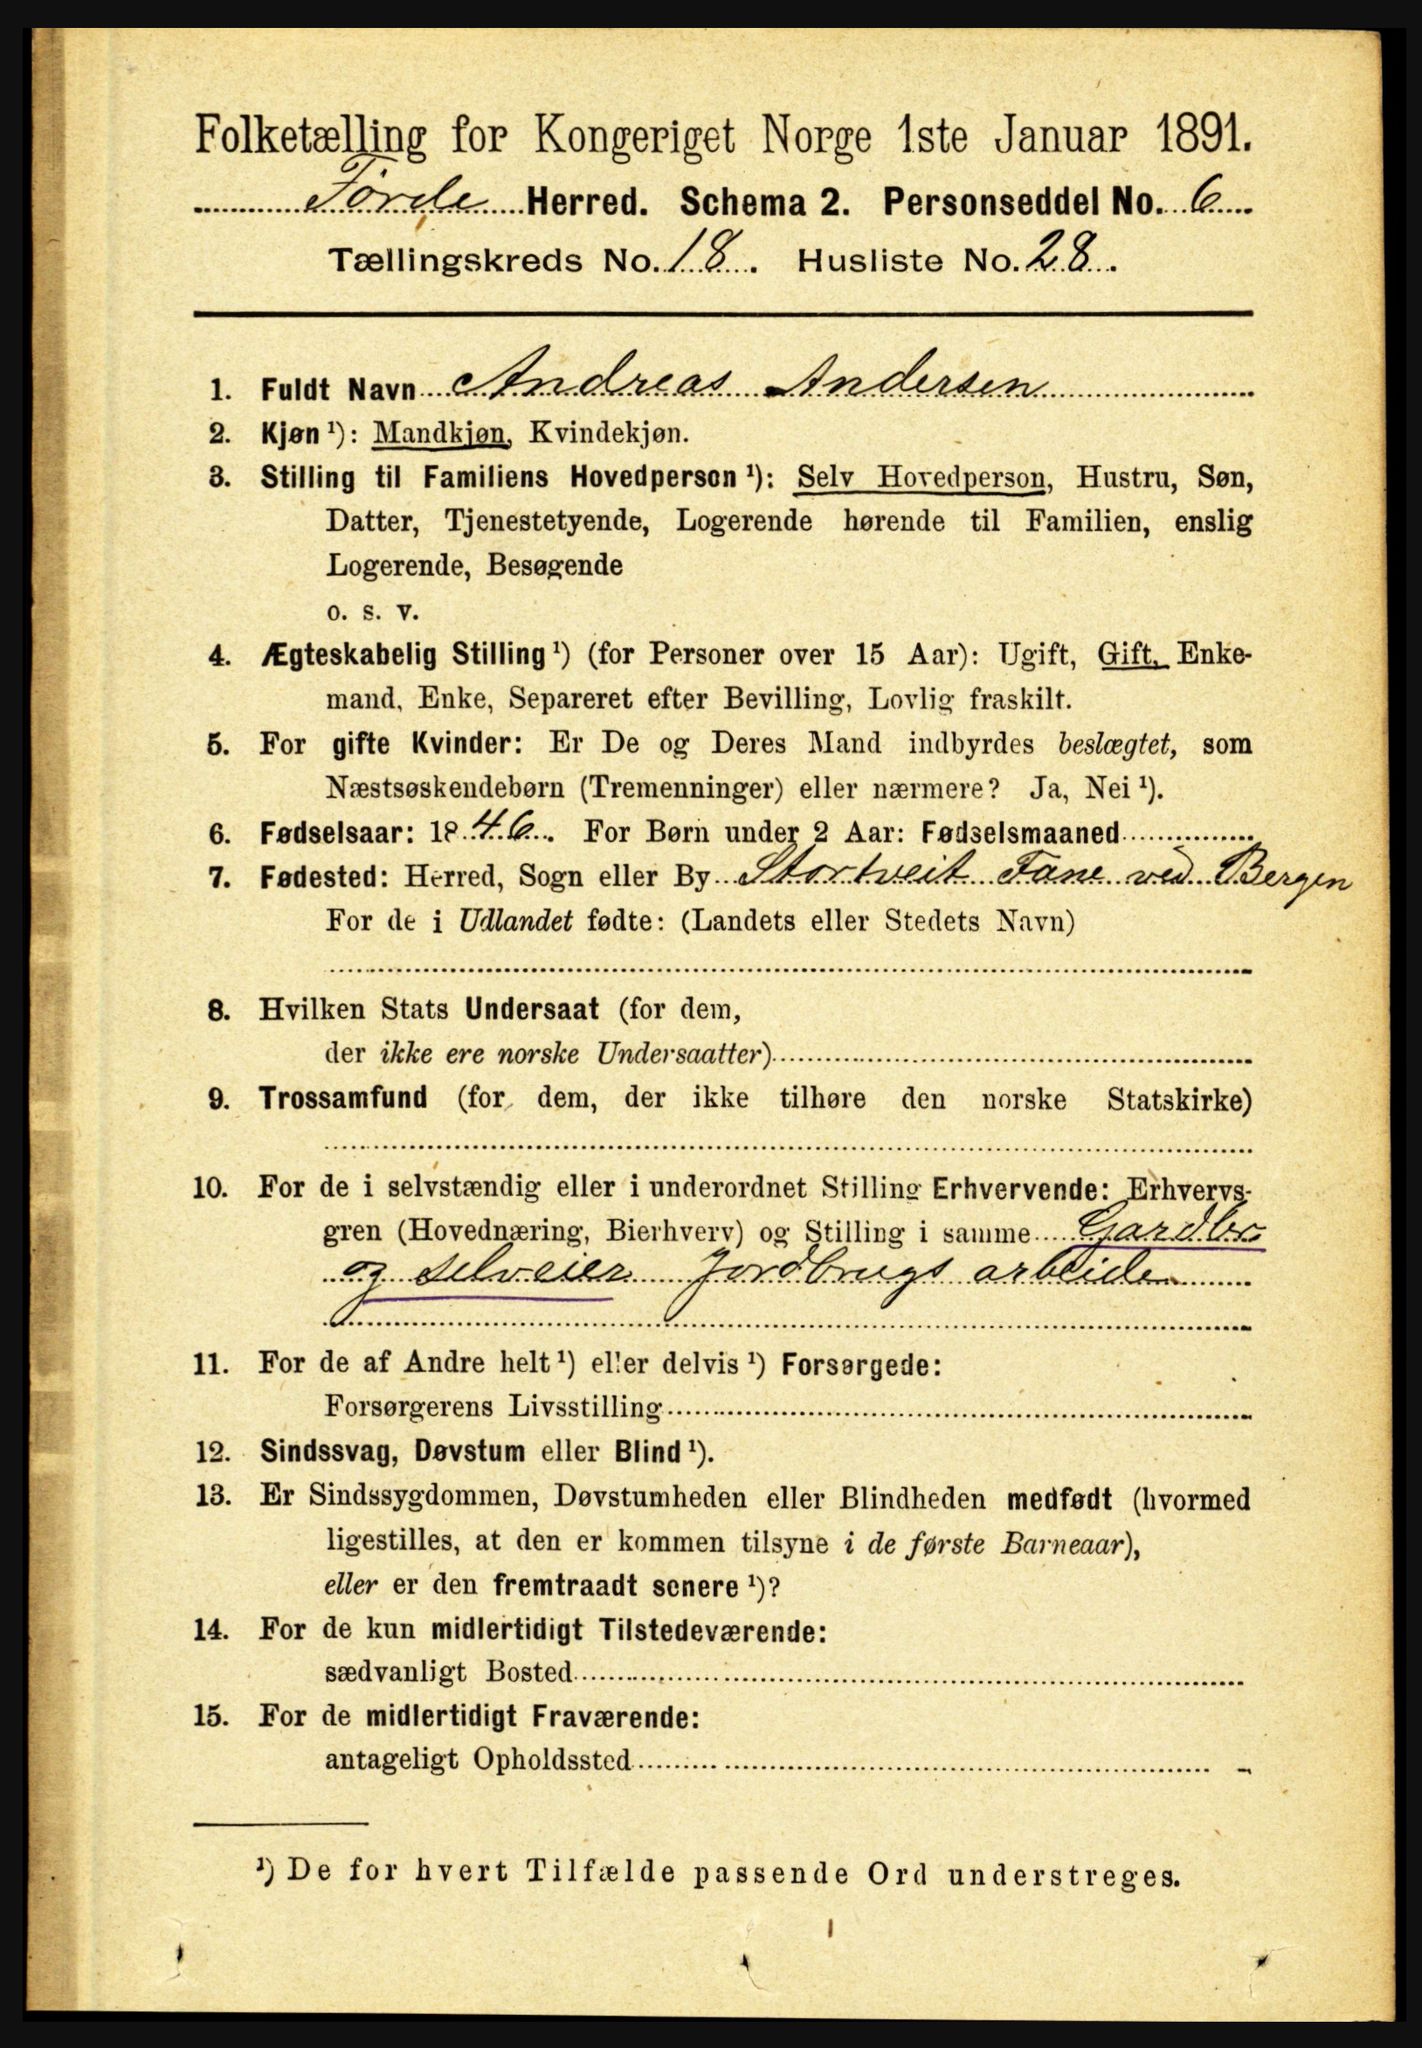 Folketælling for Kongeriget Norge 1ste Januar 1891.
Førde Herred. Schema 2. Personseddel No. 6
Tællingskreds No. 18. Husliste No. 28.
1. Fuldt Navn Andreas Andersen
2. Kjøn ¹): Mandkjøn, Kvindekjøn.
3. Stilling til Familiens Hovedperson ¹): Selv Hovedperson, Hustru, Søn,
Datter, Tjenestetyende, Logerende hørende til Familien, enslig
Logerende, Besøgende
o. s. v.
4. Ægteskabelig Stilling ¹) (for Personer over 15 Aar): Ugift, Gift, Enke-
mand, Enke, Separeret efter Bevilling, Lovlig fraskilt.
5. For gifte Kvinder: Er De og Deres Mand indbyrdes beslægtet, som
Næstsøskendebørn (Tremenninger) eller nærmere? Ja, Nei ¹).
6. Fødselsaar: 1846. For Børn under 2 Aar: Fødselsmaaned
7. Fødested: Herred, Sogn eller By Stortveit Fane ved Bergen
For de i Udlandet fødte: (Landets eller Stedets Navn)
8. Hvilken Stats Undersaat (for dem,
der ikke ere norske Undersaatter)
9. Trossamfund (for dem, der ikke tilhøre den norske Statskirke)
10. For de i selvstændig eller i underordnet Stilling Erhvervende: Erhvervs-
gren (Hovednæring, Bierhverv) og Stilling i samme Gardbr.
og selveier Jordbrugs arbeide
11. For de af Andre helt ¹) eller delvis ¹) Forsørgede:
Forsørgerens Livsstilling
12. Sindssvag, Døvstum eller Blind ¹).
13. Er Sindssygdommen, Døvstumheden eller Blindheden medfødt (hvormed
ligestilles, at den er kommen tilsyne i de første Barneaar),
eller er den fremtraadt senere ¹)?
14. For de kun midlertidigt Tilstedeværende:
sædvanligt Bosted
15. For de midlertidigt Fraværende:
antageligt Opholdssted
¹) De for hvert Tilfælde passende Ord understreges.